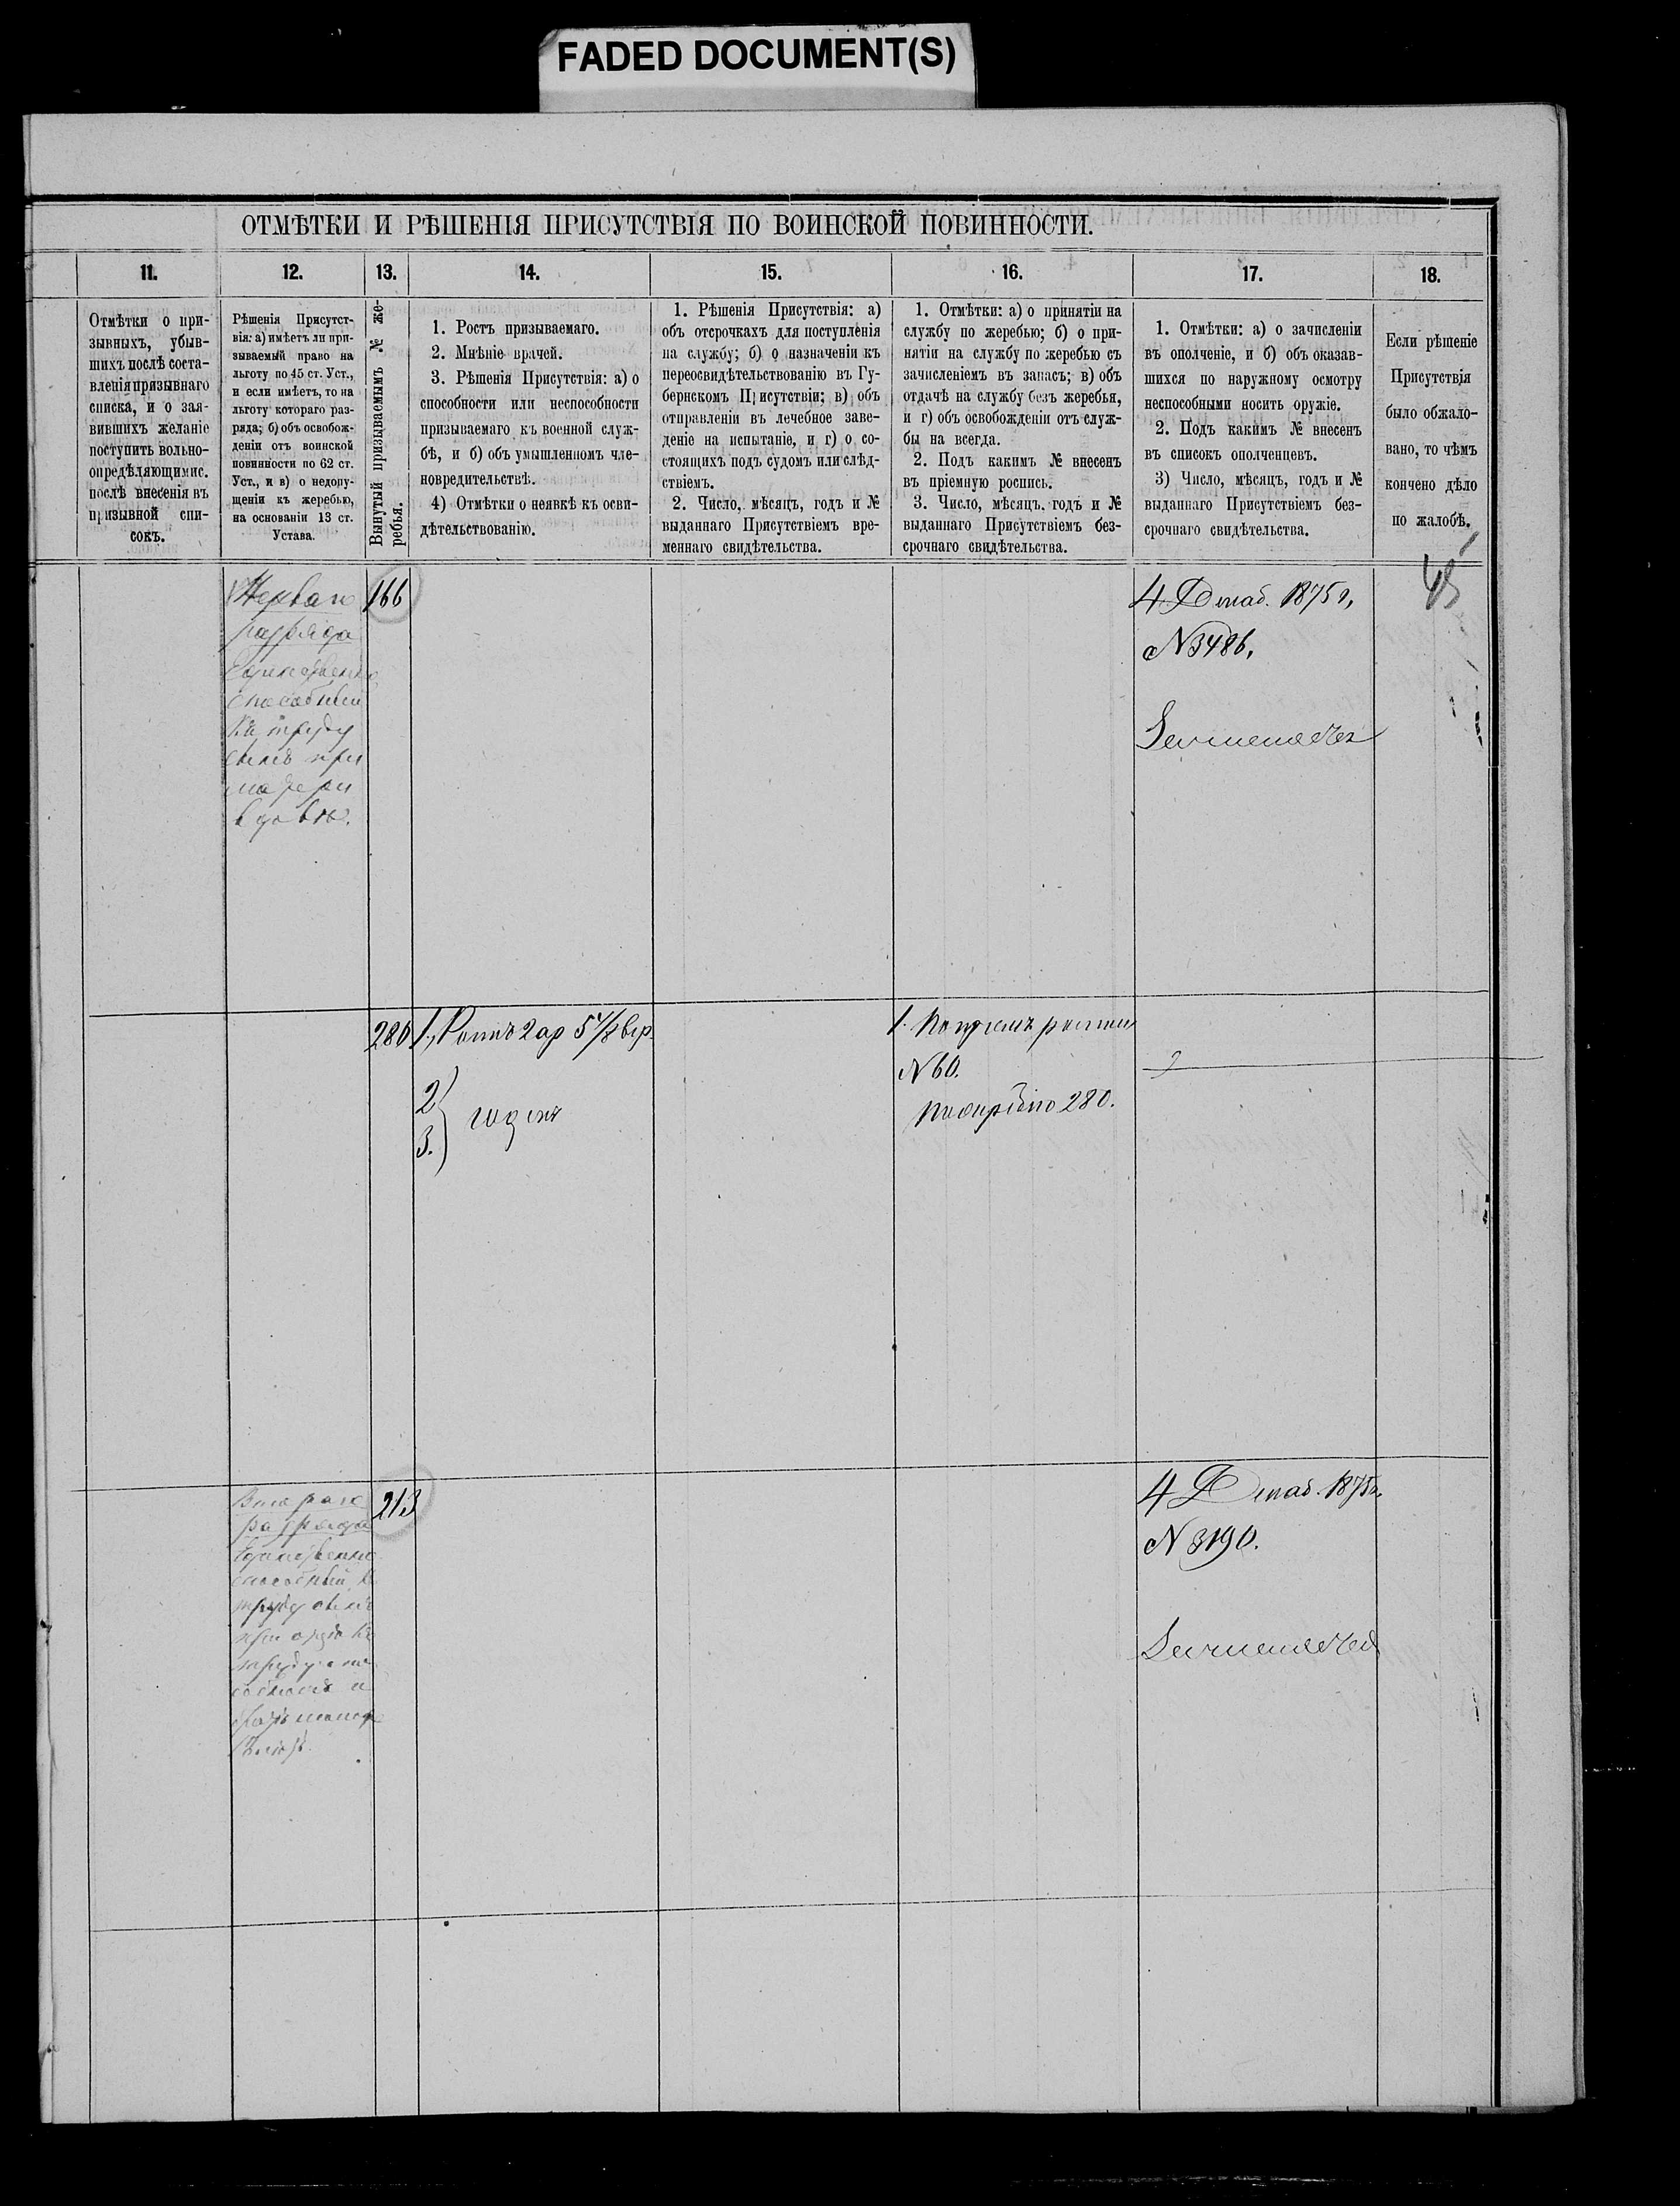 FADED DOCUMENT(S)
ОТМѢТКИ И РѢШЕНІЯ ПРИСУТСТВІЯ ПО ВОИНСКОЙ ПОВИННОСТИ.
11.
12.
13.
14.
15.
16.
17.
18.
Отмѣтки о при-
зывныхъ, убыв-
шихъ послѣ соста-
вленія призывнаго
списка, и о зая-
вившихъ желаніе
поступить вольно-
опредѣляющимис.
послѣ внесенія въ
призывной спи-
сокъ.
Рѣшенія Присутст-
вія: а) имѣетъ ли при-
зываемый право на
льготу по 45 ст. Уст.,
и если имѣетъ, то на
льготу котораго раз-
ряда; б) объ освобож-
деніи отъ воинской
повинности по 62 ст.
Уст., и в) о недопу-
щеніи къ жеребью,
на основаніи 13 ст.
Устава.
Вынутый призываемымъ № же-
ребья.
1. Ростъ призываемаго.
2. Мнѣніе врачей.
3. Рѣшенія Присутствія: а) о
способности или неспособности
призываемаго къ военной служ-
бѣ, и б) объ умышленномъ чле-
новредительствѣ.
4) Отмѣтки о неявкѣ къ осви-
дѣтельствованію.
1. Рѣшенія Присутствія: а)
объ отсрочкахъ для поступленія
на службу; б) о назначеніи къ
переосвидѣтельствованію въ Гу-
бернскомъ Присутствіи; в) объ
отправленіи въ лечебное заве-
деніе на испытаніе, и г) о со-
стоящихъ подъ судомъ или слѣд-
ствіемъ.
2. Число, мѣсяцъ, годъ и №
выданнаго Присутствіемъ вре-
меннаго свидѣтельства.
1. Отмѣтки: а) о принятіи на
службу по жеребью; б) о при-
нятіи на службу по жеребью съ
зачисленіемъ въ запасъ; в) объ
отдачѣ на службу безъ жеребья,
и г) объ освобожденіи отъ служ-
бы на всегда.
2. Подъ какимъ № внесенъ
въ пріемную роспись.
3. Число, мѣсяцъ, годъ и №
выданнаго Присутствіемъ без-
срочнаго свидѣтельства.
1. Отмѣтки: а) о зачисленіи
въ ополченіе, и б) объ оказав-
шихся по наружному осмотру
неспособными носить оружіе.
2. Подъ какимъ № внесенъ
въ списокъ ополченцевъ.
3) Число, мѣсяцъ, годъ и №
выданнаго Присутствіемъ без-
срочнаго свидѣтельства.
Если рѣшеніе
Присутствія
было обжало-
вано, то чѣмъ
кончено дѣло
по жалобѣ.
Перваго
разряда
Единственно
способный
къ труду
сынъ при
матери
вдовѣ.
166
4 Декаб. 1875 г,
N 3486,
280
1, Ростъ 2 ар 5 4/8 вер.
2)
3.) годенъ
1. По пріемн росписи
N 60.
по жеребью 280.
Втораго
разряда
Единственно
способный къ
труду сынъ
при отцѣ къ
труду спо
собномъ и
213
4 Декаб. 1875 г.
N 3190.